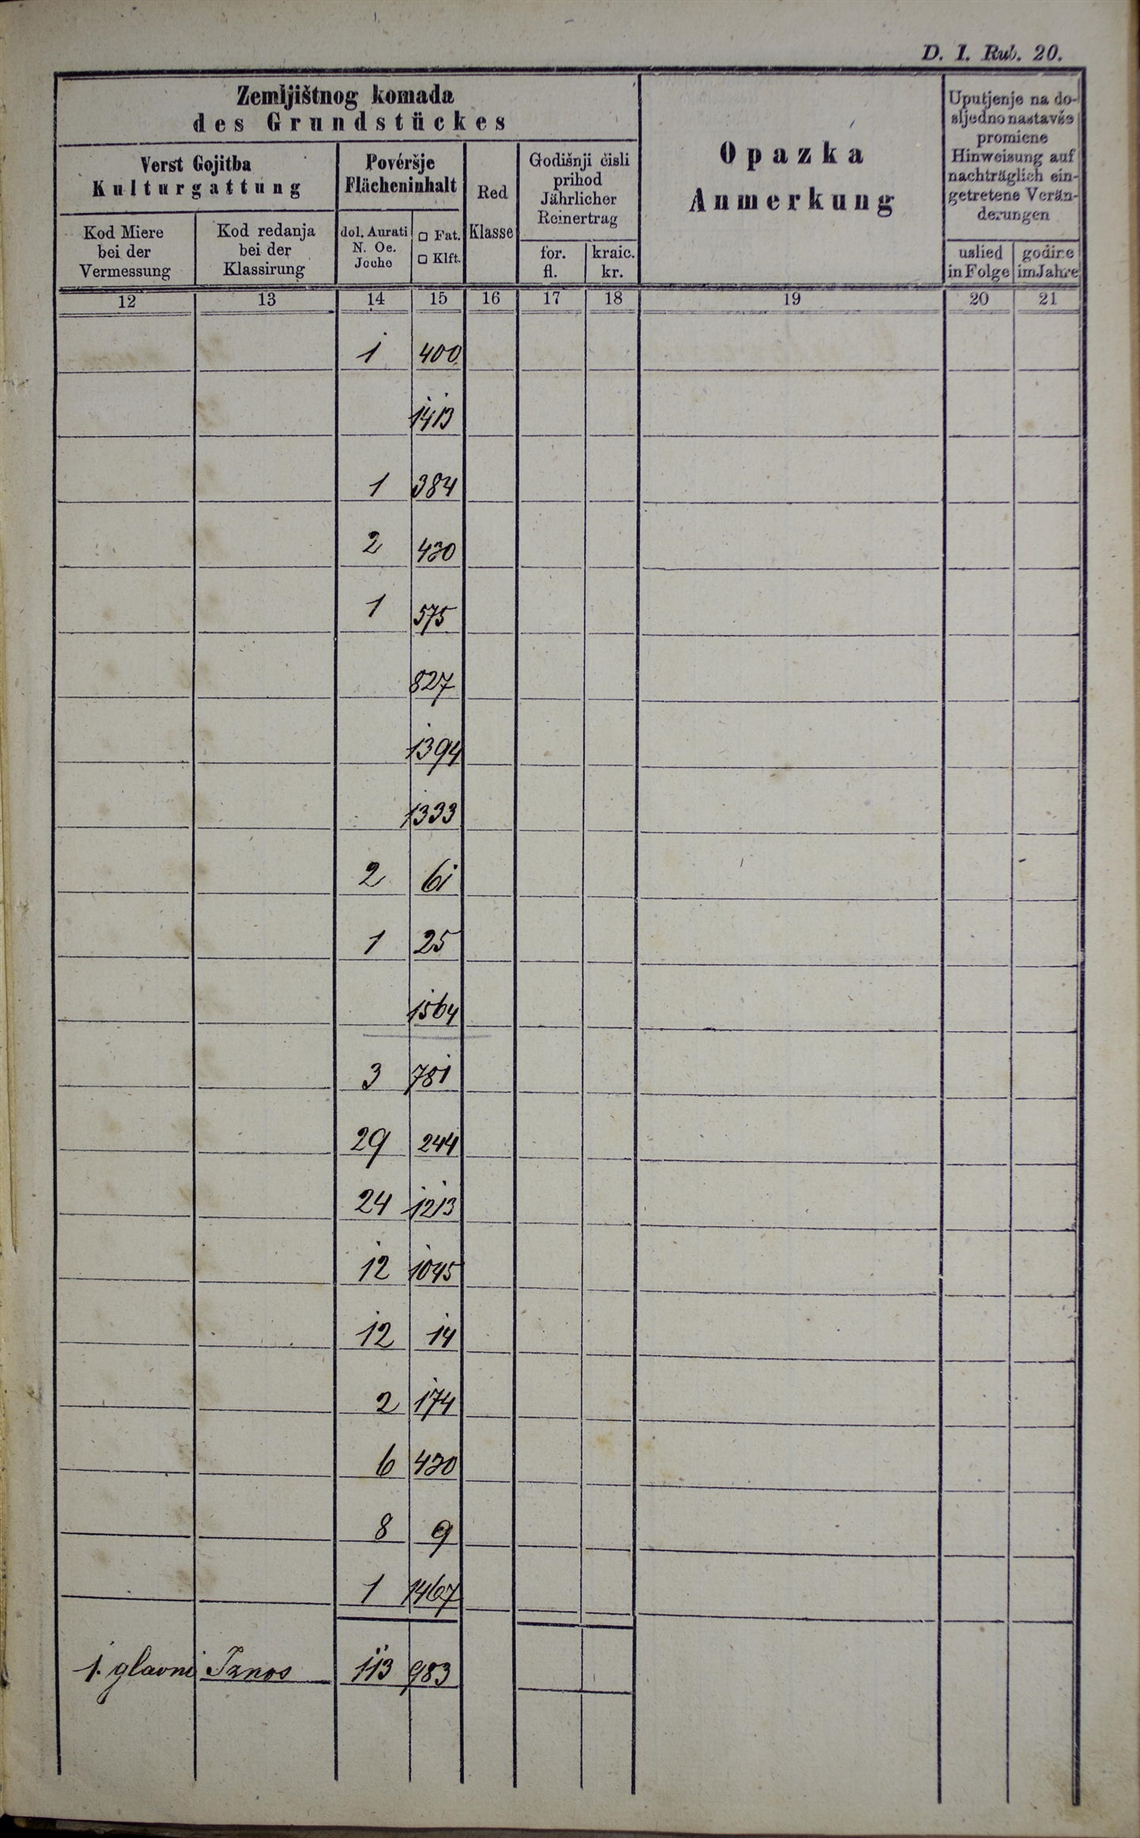 D. I. Rub. 20.
Zemljištnog komada
des Grundstückes
Verst Gojitba
Kulturgattung
Kod Miere
bei der
Vermessung
Kod redanja
bei der
Klassirung
Povéršje
Flächeninhalt
dol. Aurati
N. Oe.
Joche
□ Fat.
□ Klft.
Red
Klasse
Godišnji čisli
prihod
Jährlicher
Reinertrag
for.
fl.
kraic.
kr.
Opazka
Anmerkung
Uputjenje na do-
sljedno nastavše
promiene
Hinweisung auf
nachträglich ein-
getretene Verän-
derungen
uslied
in Folge
godine
im Jahre
12 13 14 15 16 17 18 19 20 21
1 400
1413
1 384
2 430
1 575
827
1394
1333
2 61
1 25
1564
3 781
29 244
24 1213
12 1045
12 14
2 174
6 430
8 9
1 1467
1. glavni Iznos 113 983